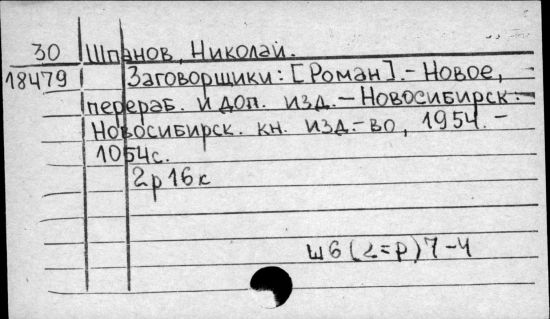 30 Шпанов, Николай.
18479 Заговорщики: [Роман].- Новое,
перераб. и доп. изд.- Новосибирск:
Новосибирск. кн. изд.-во, 1954. -
1054с.
2р16к
ш6(2=р)7-4